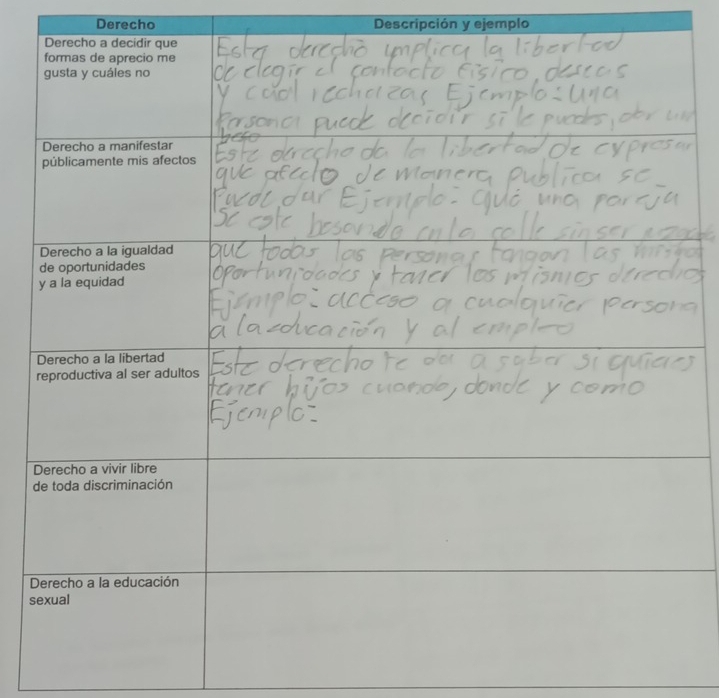 Derecho
Descripción y ejemplo
Derecho a decidir que
formas de aprecio me
gusta y cuáles no
Este derecho implica la libertad
de elegir el contacto físico, deseas
y cual rechazas Ejemplo: Una
Persona puede decidir si le puedes, dar un
beso
Derecho a manifestar
públicamente mis afectos
Este derecho da la libertad de expresar
que afecto de manera publica se
Puede dar Ejemplo: que una pareja
se este besando en la calle sin ser
Derecho a la igualdad
de oportunidades
y a la equidad
que todas las personas tengan las mismas
oportunidades y tener los mismos derechos
Ejemplo: acceso a cualquier persona
a la educación y al empleo
Derecho a la libertad
reproductiva al ser adultos
Este derecho te da a saber si quieres
tener hijos cuando, donde y como
Ejemplo:
Derecho a vivir libre
de toda discriminación
Derecho a la educación
sexual